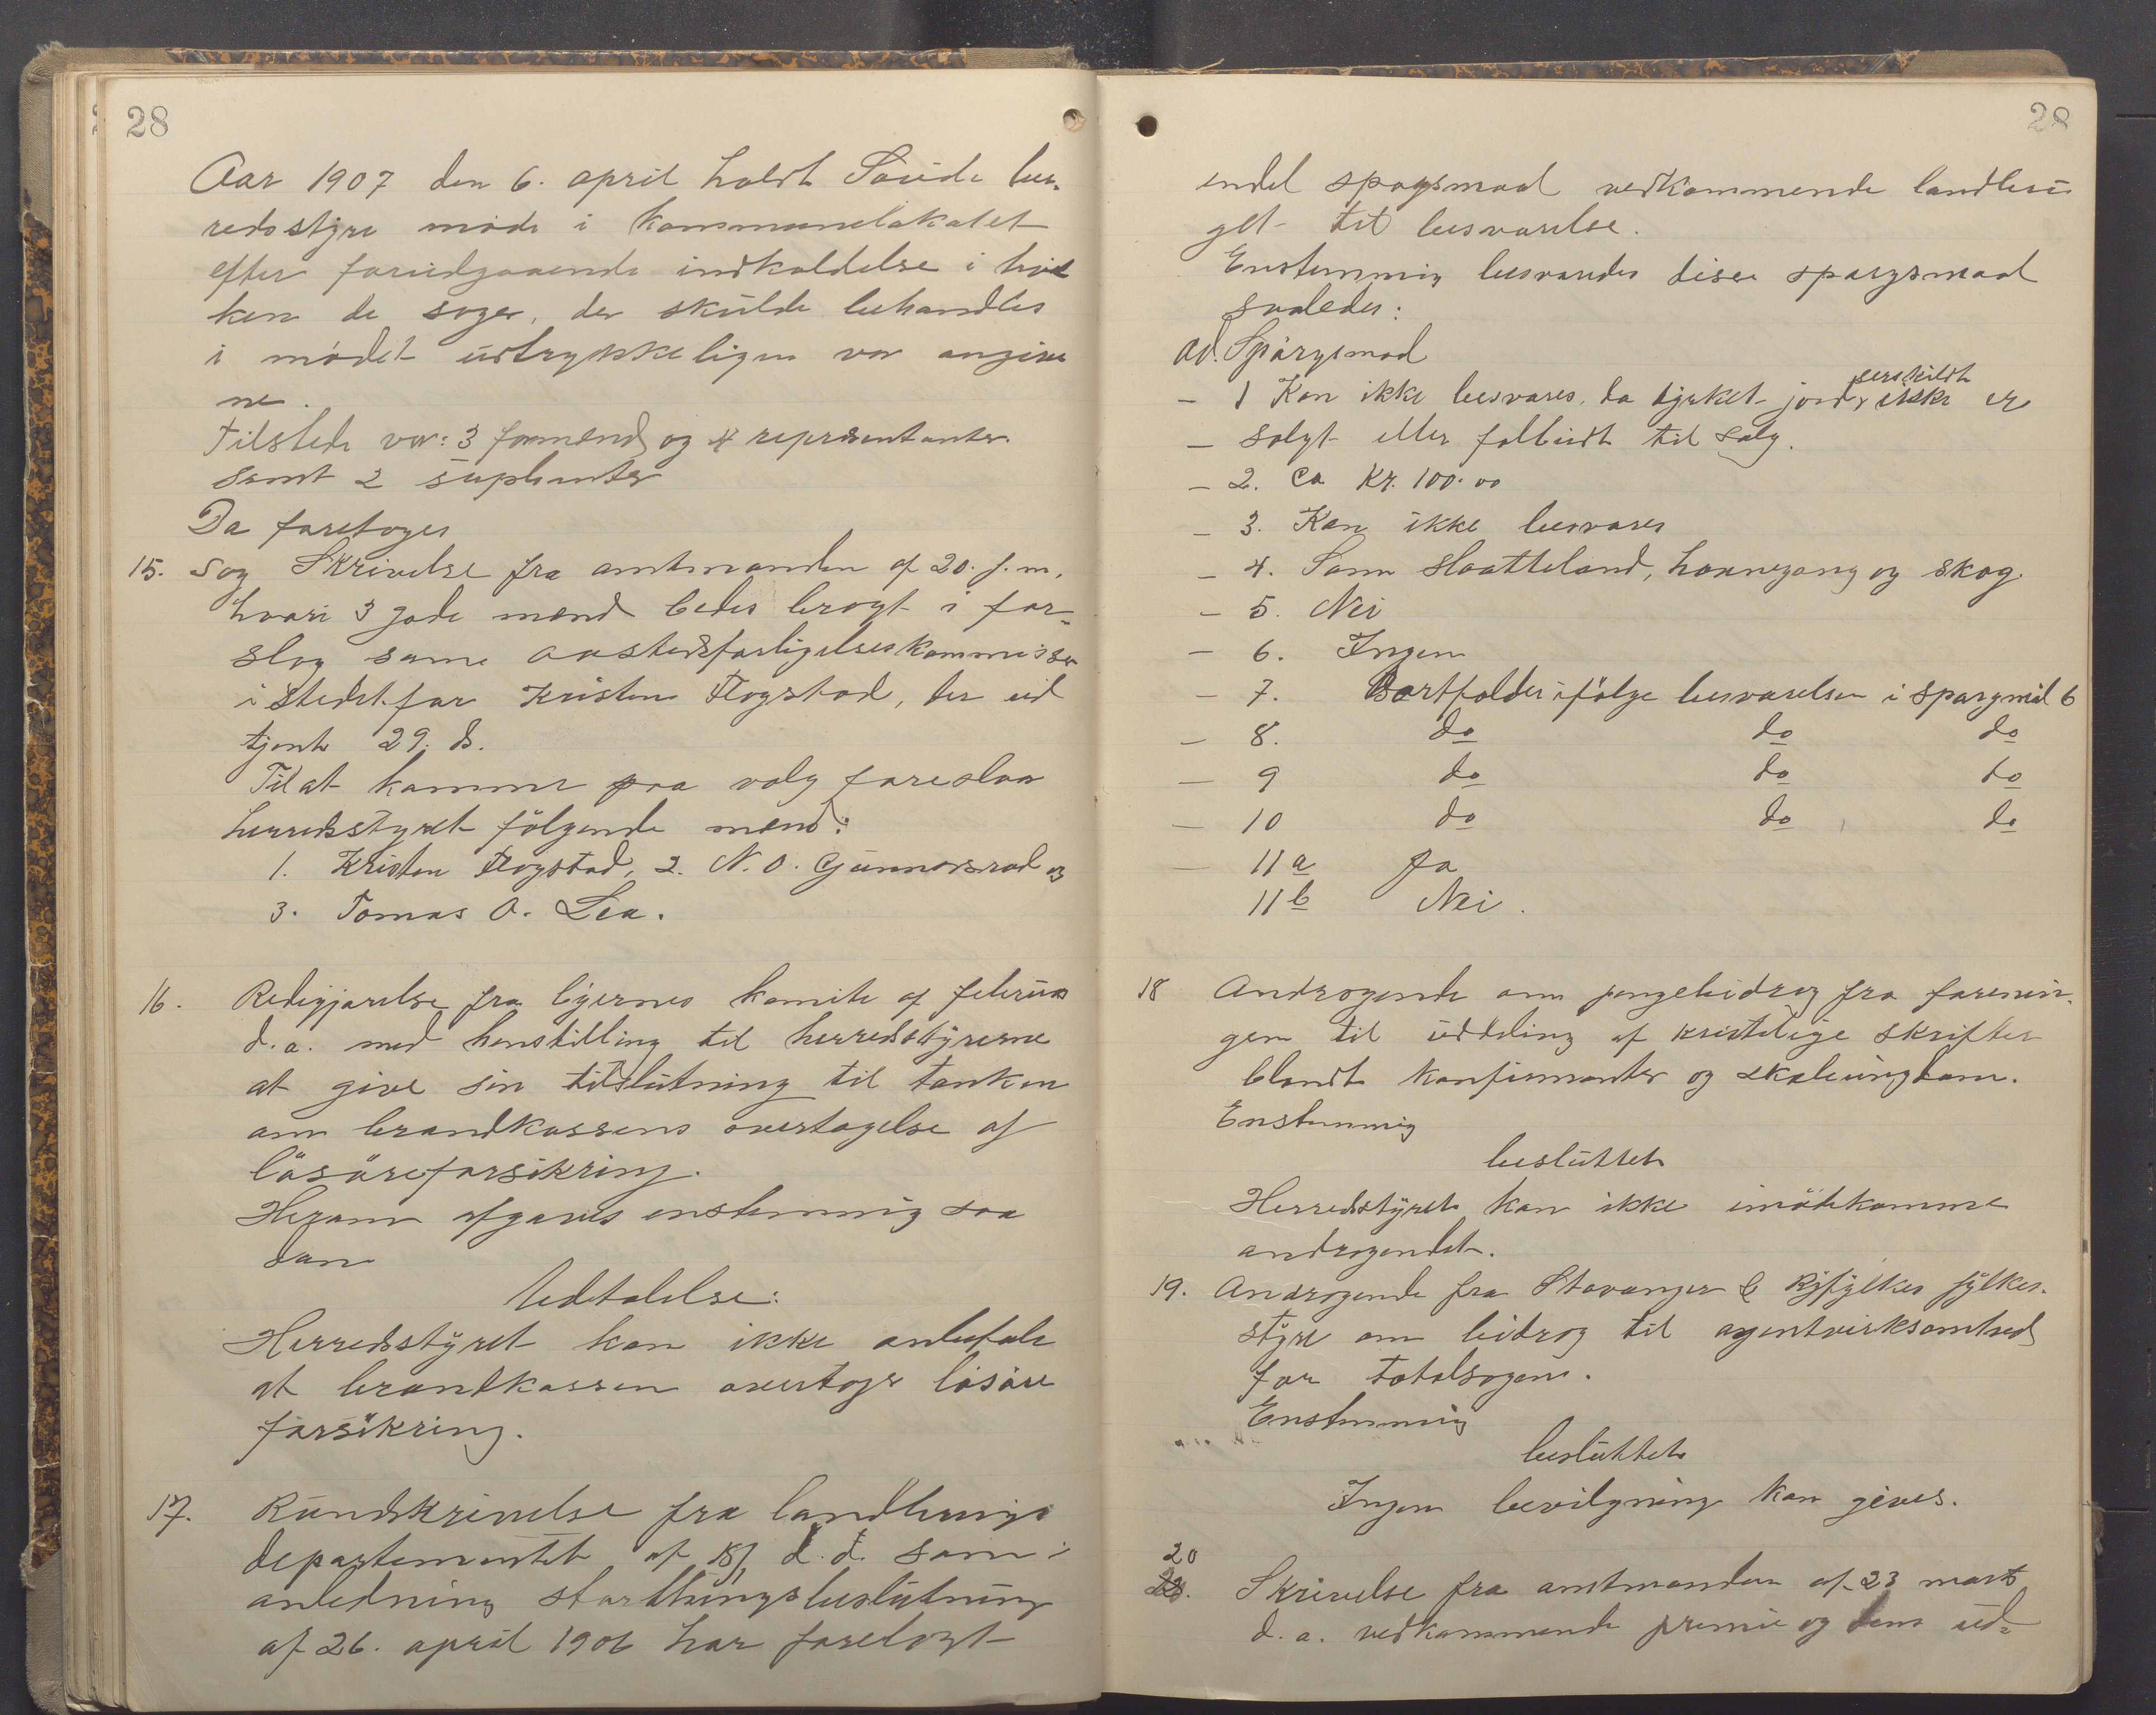 28
Aar 1907 den 6. april holdt Saude her-
redsstyre møde i kommunelokalet
efter forudgaaende indkaldelse i hvil
ken de sager, der skulde behandles
i mødet udtrykkeligen var angivne
ne.
Tilstede var: 3 formænd og 4 repræsentanter
samt 2 suplianter
Da foretoges
15. Sag Skrivelse fra amtmanden af 20. f. m.
hvori 3 gode mænd bedes bragt i for-
slag some aastedsforligelseskommissær
i stedet for Kristen Flogstad, der ud
tjente 29. ds.
Til at komme paa valg foreslaar
herredsstyret følgende mænd:
1. Kristen Flogstad, 2. N. O. Gunnarsrod og
3. Tomas O. Lea.
16. Redigjørelse fra byernes komite af februar
d. a. med henstilling til herredsstyrerne
at give sin tilslutning til tanken
om brandkassens overtagelse af
løsøreforsikring.
Herom afgaves enstemmig saa
dan
Udtalelse:
Herredsstyret kan ikke anbefale
at brandkassen overtager løsøre
forsikring.
17. Rundskrivelse fra landbrugs
departementet af d. d. som i
anledning storthingsbeslutning
af 26. april 1906 har forelagt
28
endel spørgsmaal vedkommende landbru
get til besvarelse.
Enstemmig besvaredes disse spørgsmaal
saaledes:
ad. Spørgsmaal
- 1 Kan ikke besvares, da dyrket jord særskildt ikke er
- solgt eller falbudt til salg.
- 2. Ca Kr. 100.00
- 3. Kan ikke besvares
- 4. Som slaatteland, havnegang og skog.
- 5. Nei
- 6. Ingen
- 7. Bortfalder ifølge besvarelsen i spørgsmål 6
- 8. do do do
- 9 do do do
- 10 do do do
- 11 a Ja
11 b Nei.
18 Andragende om pengebidrag fra forenin-
gen til uddeling af kristelige skrifter
blandt konfirmanter og skoleungdom.
Enstemmig
besluttet
Herredsstyret kan ikke imødekomme
andragendet.
19. Andragende fra Stavanger & Ryfylkes fylkes-
styre om bidrag til agentvirksomhed
for totalsagen.
Enstemmig
besluttet
Ingen bevilgning kan gives.
20
Skrivelse fra amtmanden af 23 marts
d. a. vedkommende premie og dens ud-